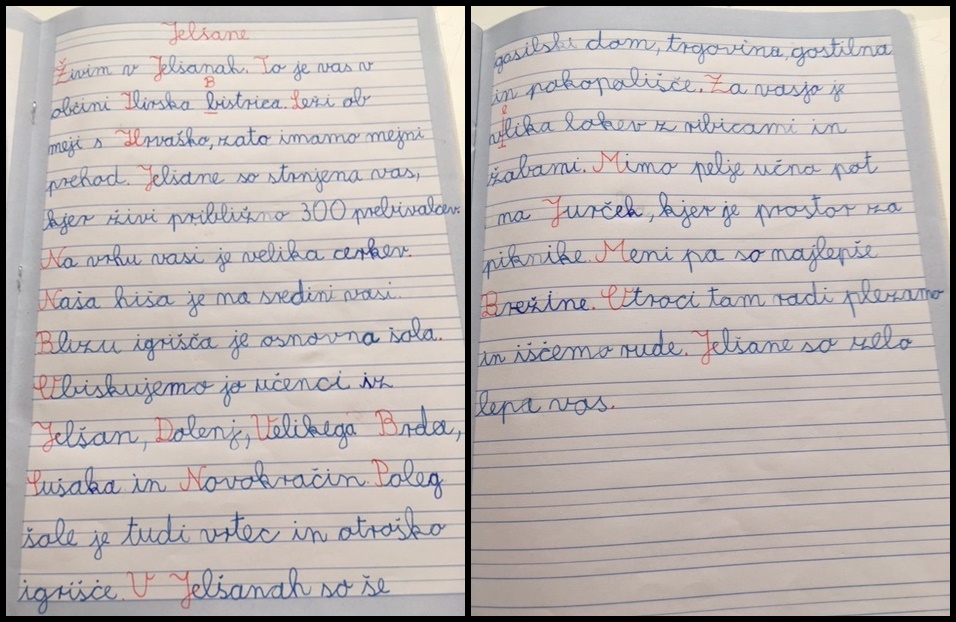 Jelšane
Živim v Jelšanah. To je vas v
B
občini Ilirska bistrica. Leži ob
meji s Hrvaško, zato imamo mejni
prehod. Jelšane so strnjena vas,
kjer živi približno 300 prebivalcev.
Na vrhu vasi je velika cerkev.
Naša hiša je na sredini vasi.
Blizu igrišča je osnovna šola.
Obiskujemo jo učenci iz
Jelšan, Dolenj, Velikega Brda,
Sušaka in Novokračin. Poleg
šole je tudi vrtec in otroško
igrišče. V Jelšanah so še
gasilski dom, trgovina, gostilna
in pokopališče. Za vasjo je
e
vlika lokev z ribicami in
žabami. Mimo pelje učna pot
na Jurček, kjer je prostor za
piknike. Meni pa so najlepše
Brežine. Otroci tam radi plezamo
in iščemo rude. Jelšane so zelo
lepa vas.